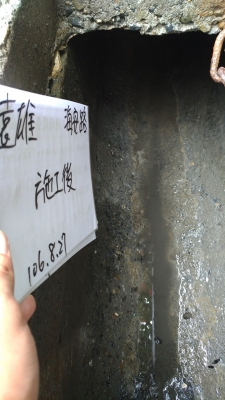 遠雄 海安路
施工後
106.8.27